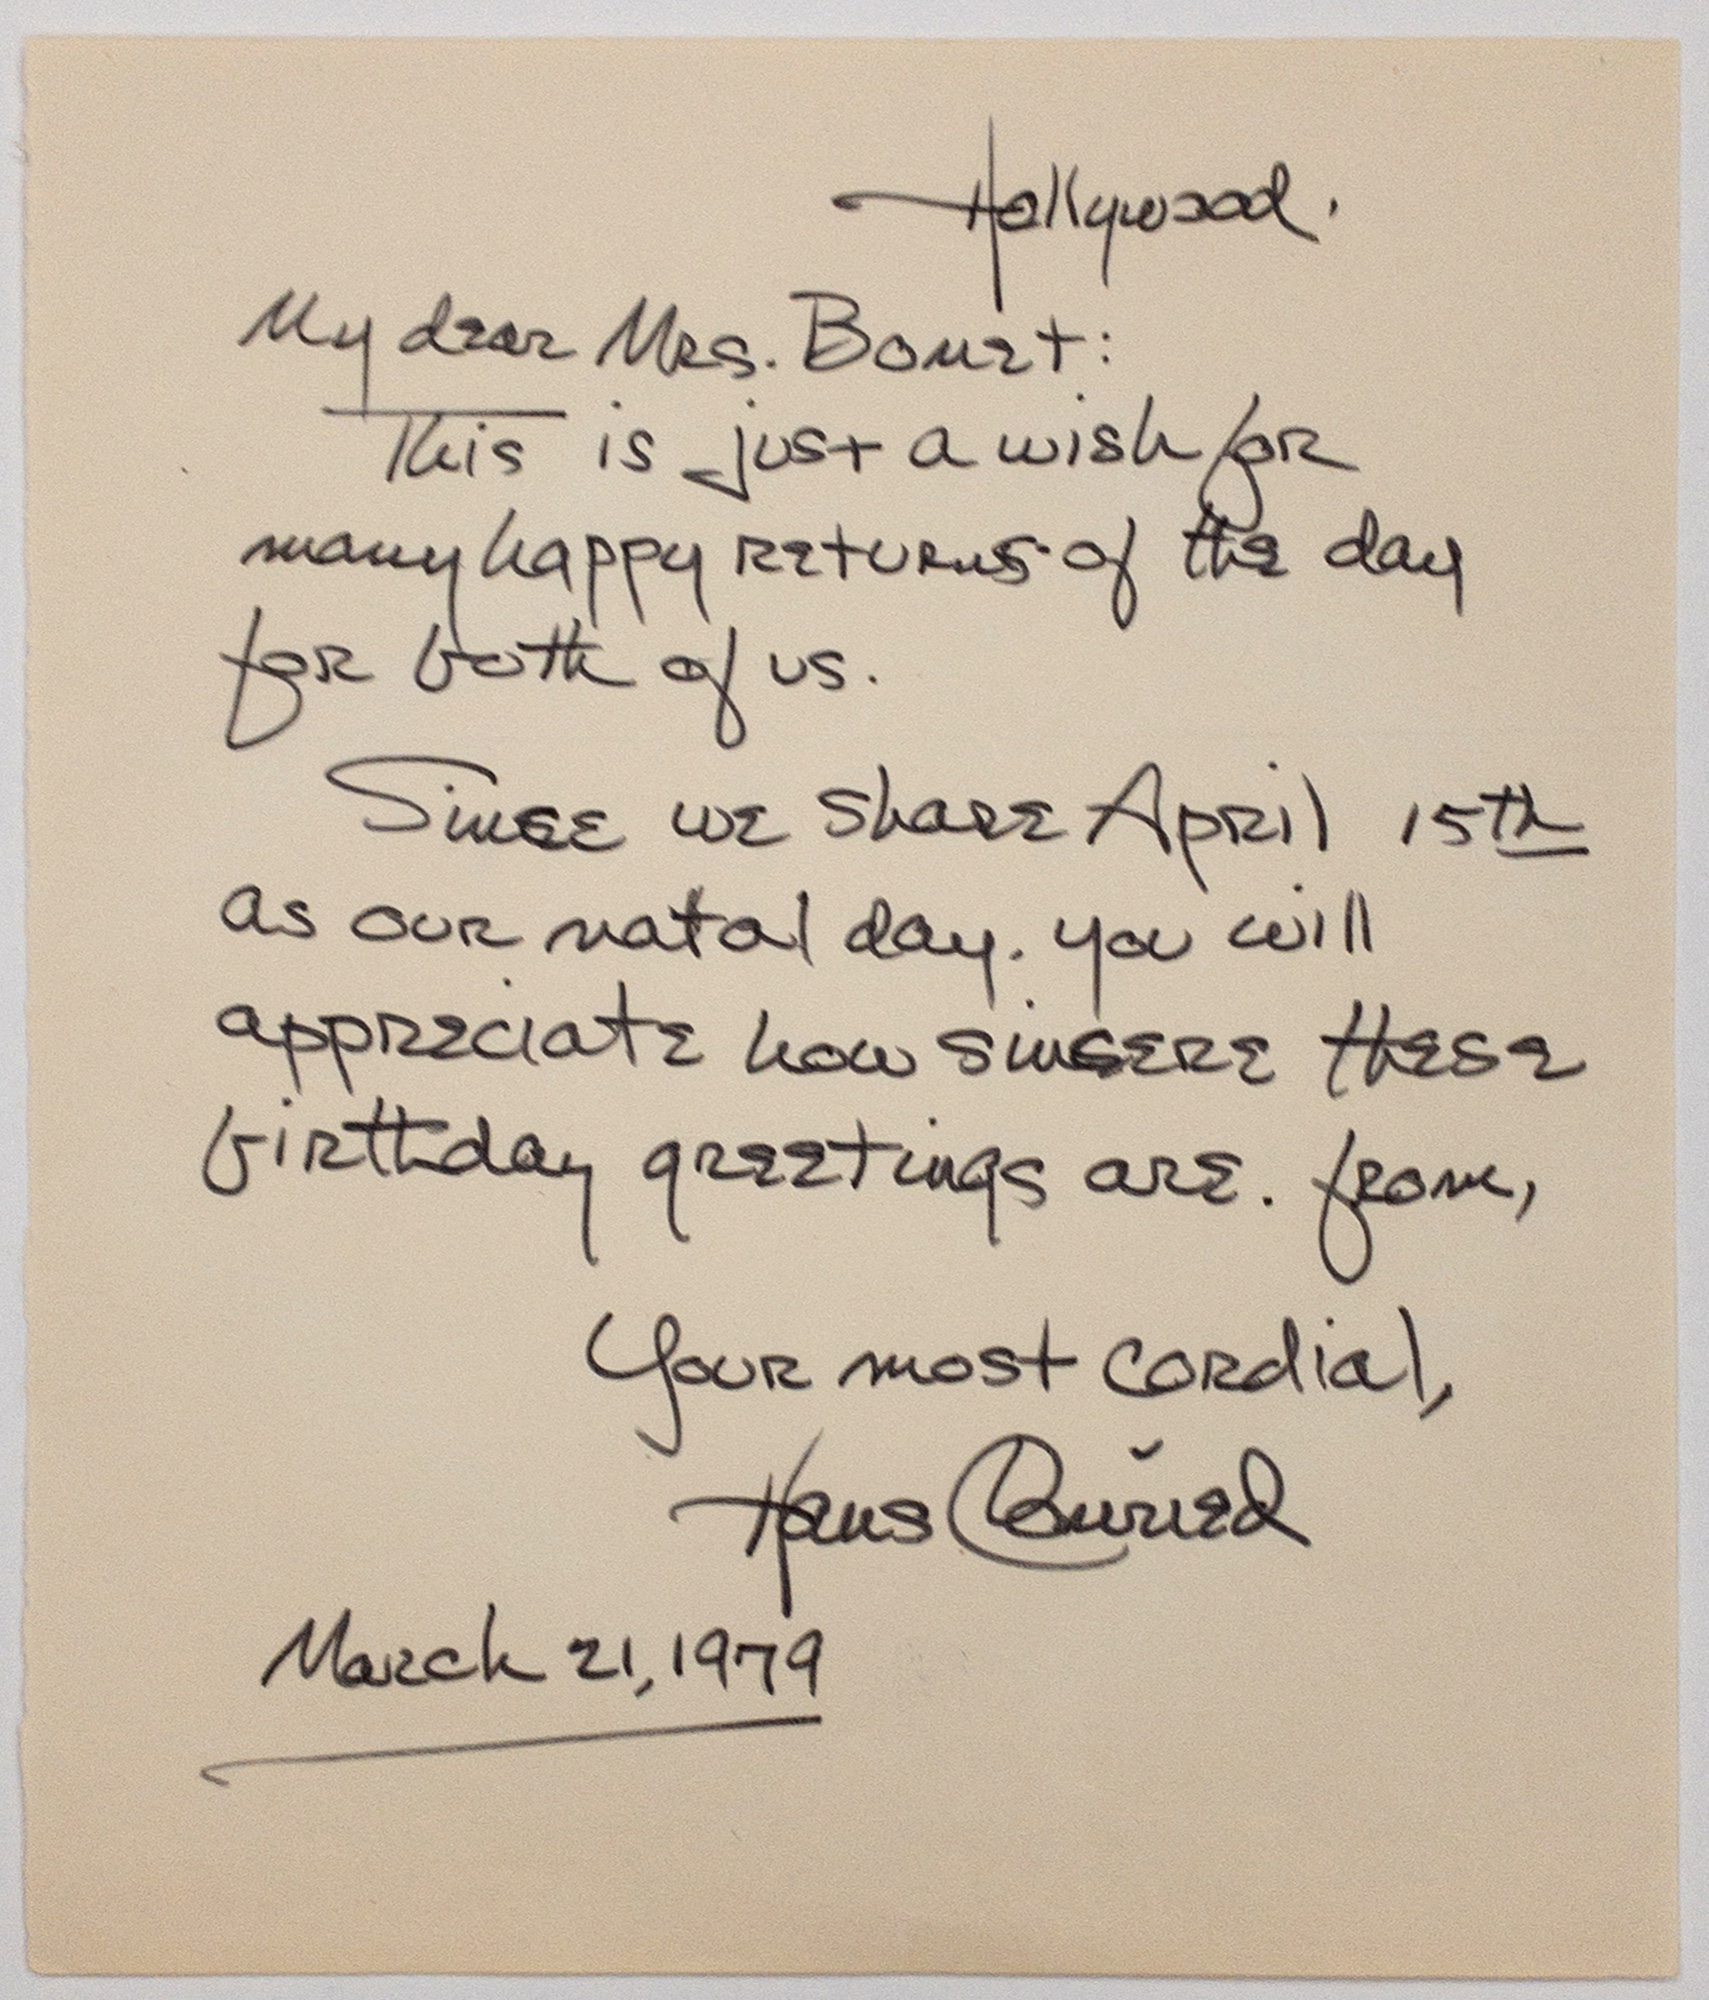 Hollywood.
My dear Mrs. Bonet:
This is just a wish for
many happy returns of the day
for both of us.
Since we share April 15th
as our natal day. you will
appreciate how sincere these
birthday greetings are. from,
Your most cordial,
Hans Conried
March 21, 1979